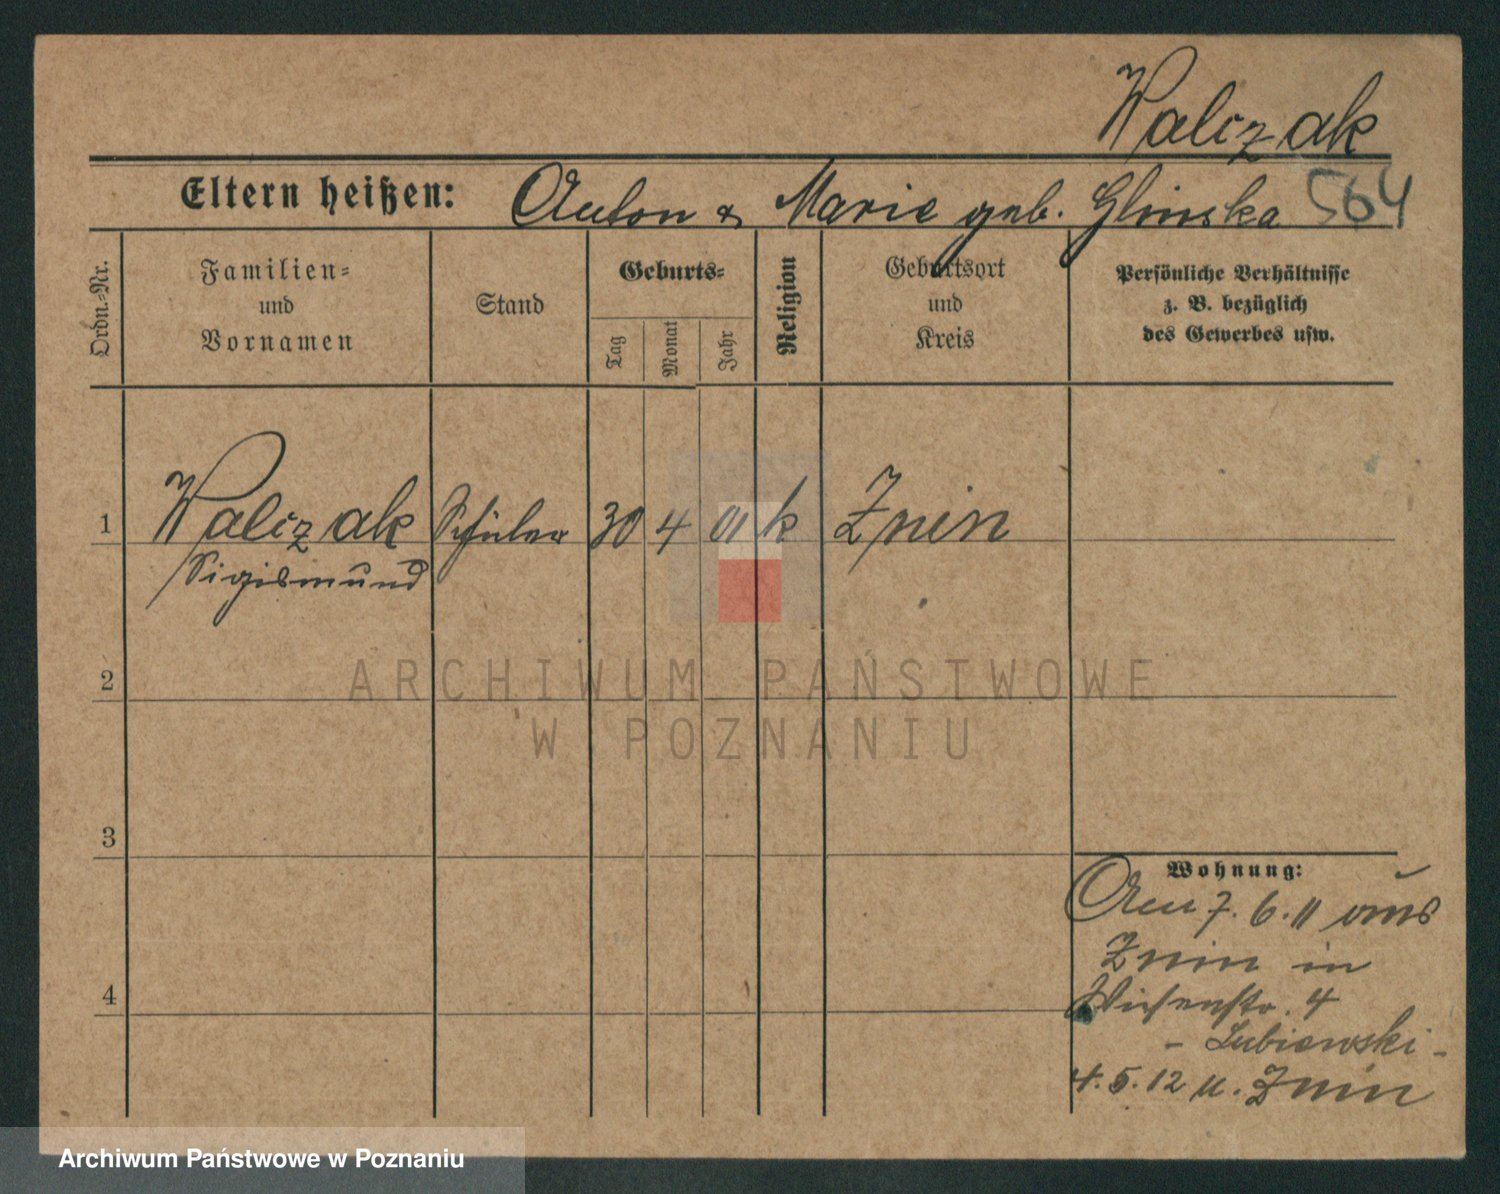 Walczak
Eltern heißen: Anton & Marie geb. Glinska 564
Ordn.-Nr.
Familien-
und
Vornamen
Stand
Geburts-
Tag
Monat
Jahr
Religion
Geburtsort
und
Kreis
Persönliche Verhältnisse
z. B. bezüglich
des Gewerbes usw.
1 Walczak Schüler 30 4 01 k Znin
Sigismund
2
3
4
Wohnung:
Am 7. 6. 11 aus
Znin in
Wiesenstr. 4
- Lubiewski -
4. 5. 12 n. Znin
ARCHIWUM PAŃSTWOWE
W POZNANIU
Archiwum Państwowe w Poznaniu